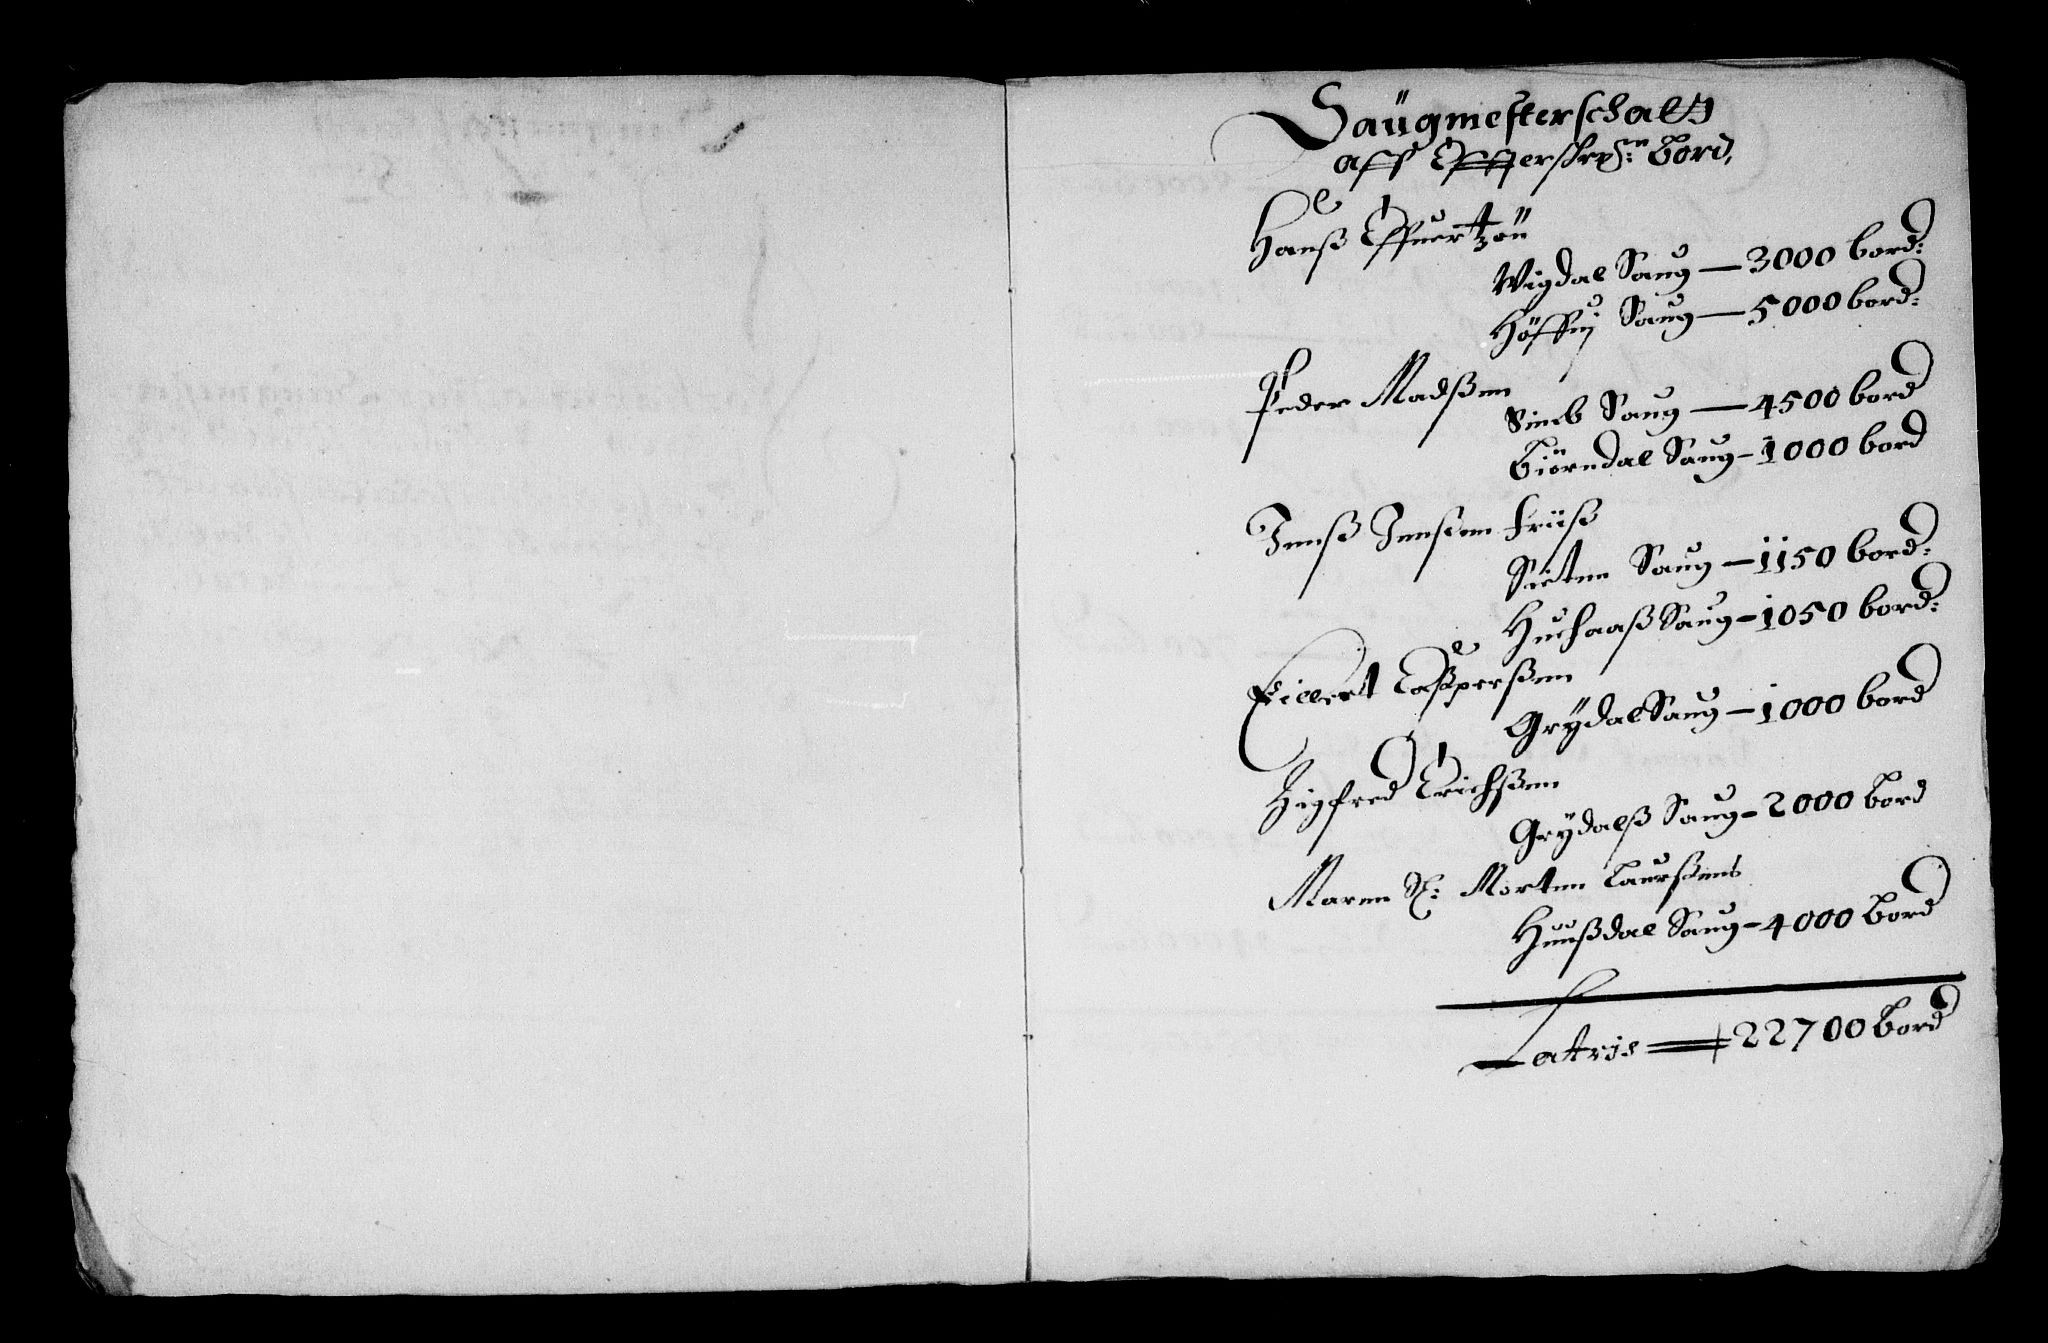 Saügmesterschatt
aff Efferskrefne Bord,
Hanß Effuertzøn
Wigdal Saug — 3000 bord:
Høffuj Saug — 5000 bord:
Peder Madßen
Sineb Saug — 4500 bord
Biørndal Saug — 1000 bord
Jenß Jensen Friiß
Sieten Saug — 1150 bord:
Huehaaß Saug — 1050 bord:
Eillert Casperßen
Grÿdal Saug — 1000 bord
Sigfred Erichßen
Grÿdalß Saug — 2000 Bord
Maren Sl: Morten Laurßens
Hunßdal Saug — 4000 Bord
Latris 22700 Bord